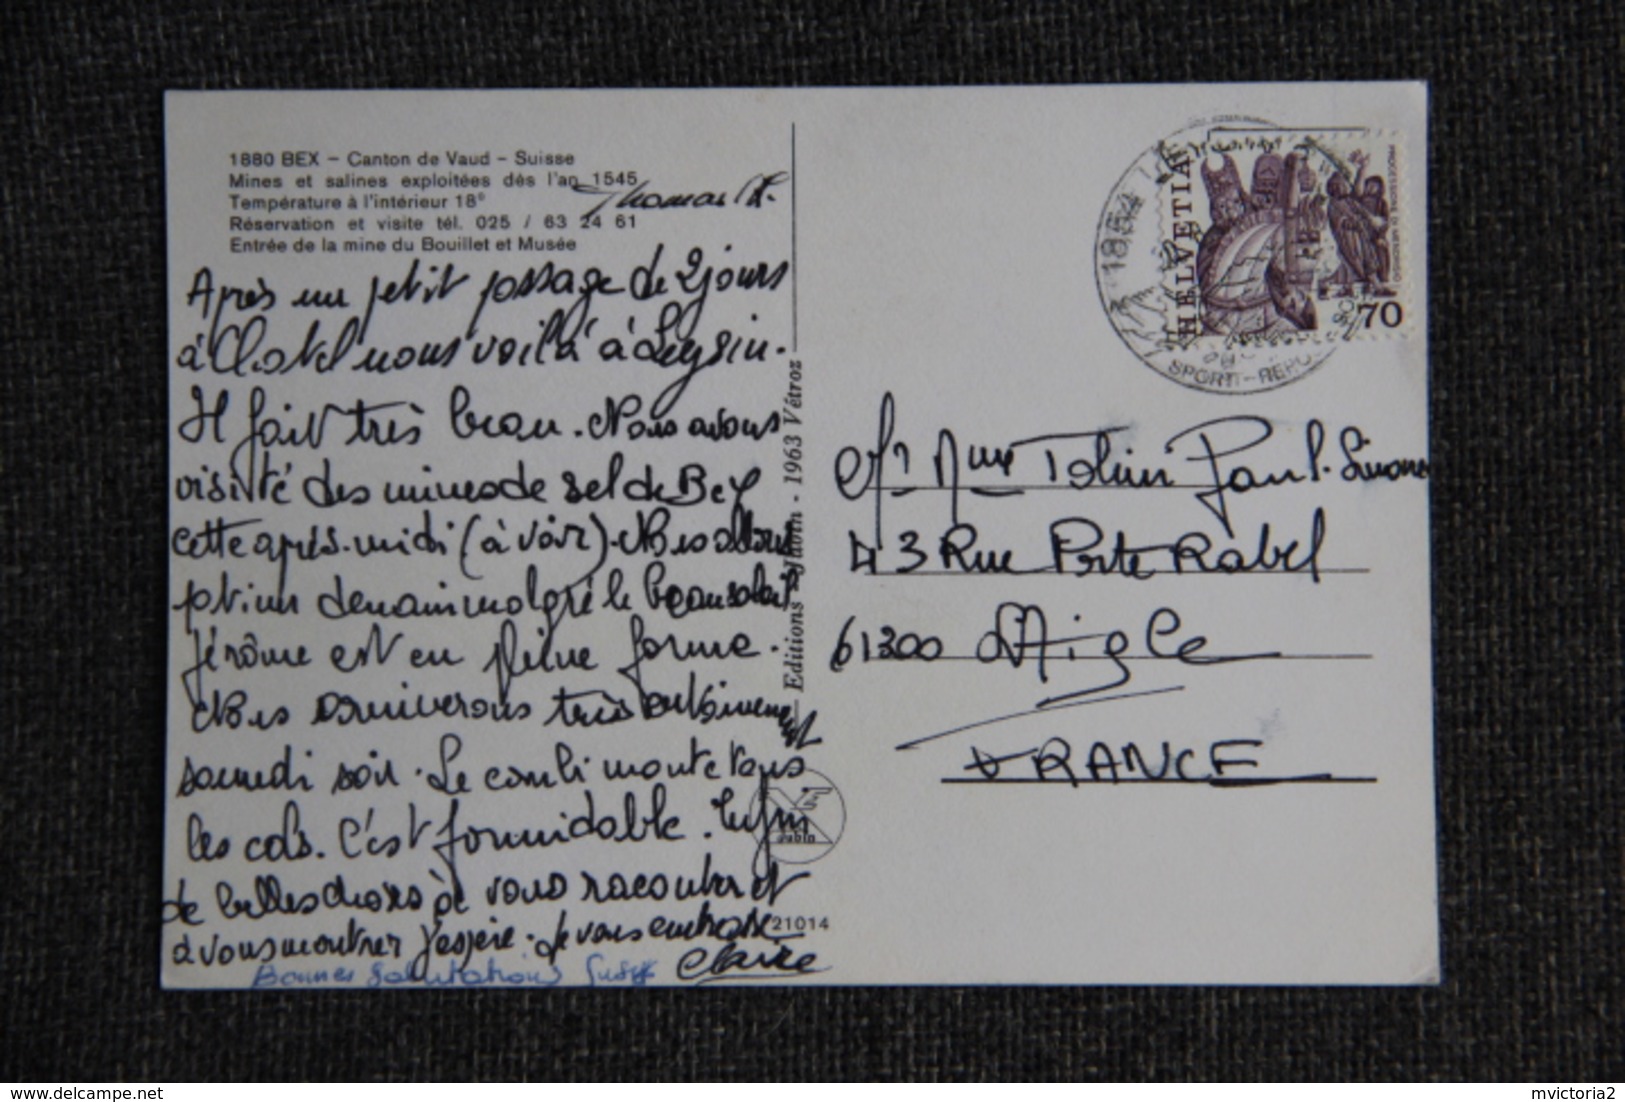 1880 BEX – Canton de Vaud – Suisse
Mines et salines exploitées dès l'an 1545
Température à l'intérieur 18°
Réservation et visite tél. 025 / 63 24 61
Entrée de la mine du Bouillet et Musée
Thomas
Après un petit passage de 2 jours
à Chatel nous voilà à Leysin.
Il fait très beau. Nous avons
visité des mines de sel de Bex
cette après-midi (à voir). Nous allons
partir demain malgré le beau soleil
Jérôme est en pleine forme.
Nous arriverons très certainement
samedi soir. Le combi monte tous
les cols. C'est formidable. Enfin
de belles choses à vous raconter et
à vous montrer j'espère. Je vous embrasse
Claire
Bonnes salutations
Editions Jubin - 1963 Vétroz
Jubin
21014
HELVETIA
70
1854
SPORT-REPOS
Mr Mme Paul. Simone
43 Rue Porte Rabel
61300 L'Aigle
FRANCE
delcampe.net
mvictoria2